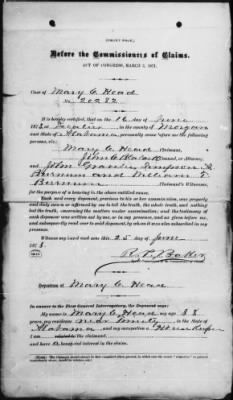 Before the Commissioners of Claims.
ACT OF CONGRESS, MARCH 3, 1871.
Case of Mary C. Head
No. 20282
It is hereby certified, that on the 16 day of June
1873, at Decatur in the county of Morgan
and State of Alabama, personally came before me the following
persons, viz:
Mary C. Head Claimant,
Counsel, or Attorney,
and John Grantlin, Simpson
Burnum and William T.
Burnum Claimant's Witnesses,
for the purpose of a hearing in the above entitled cause.
Each and every deponent, previous to his or her examination, was properly
and duly sworn or affirmed by me to tell the truth, the whole truth, and nothing
but the truth, concerning the matters under examination; and the testimony of
each deponent was written out by me, or in my presence, and as given before me,
and subsequently read over to said deponent, by whom it was also signed in my
presence.
Witness my hand and seal this 25 day of June
1873.
Deposition of Mary C. Head
In answer to the First General Interrogatory, the Deponent says:
My name is Mary C. Head my age 58
years, my residence near Trinity, in the State of
Alabama, and my occupation a House keeper
I am the claimant,
and have a beneficial interest in the claim.